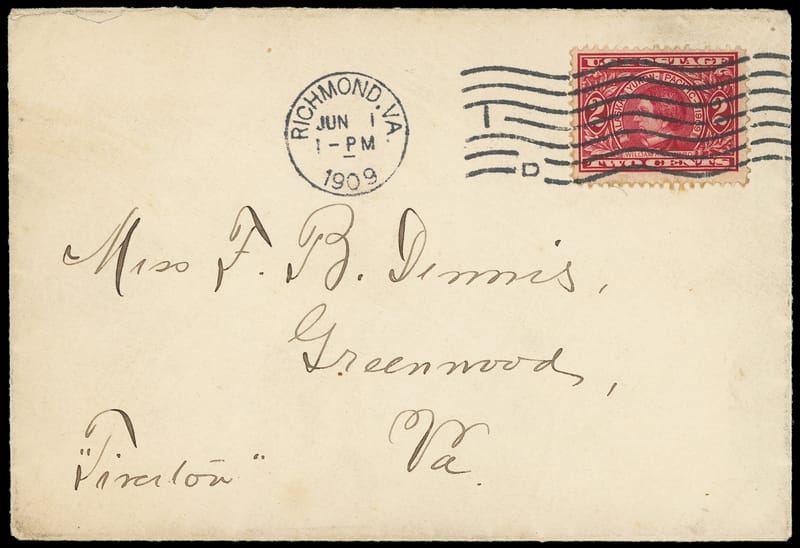 RICHMOND, VA.
JUN 1
1-PM
1909
1
D
U.S. POSTAGE
ALASKA YUKON PACIFIC 1909
2 2
WILLIAM
TWO CENTS
Miss F. B. Dennis,
Greenwood,
Va.
"Tiverton"